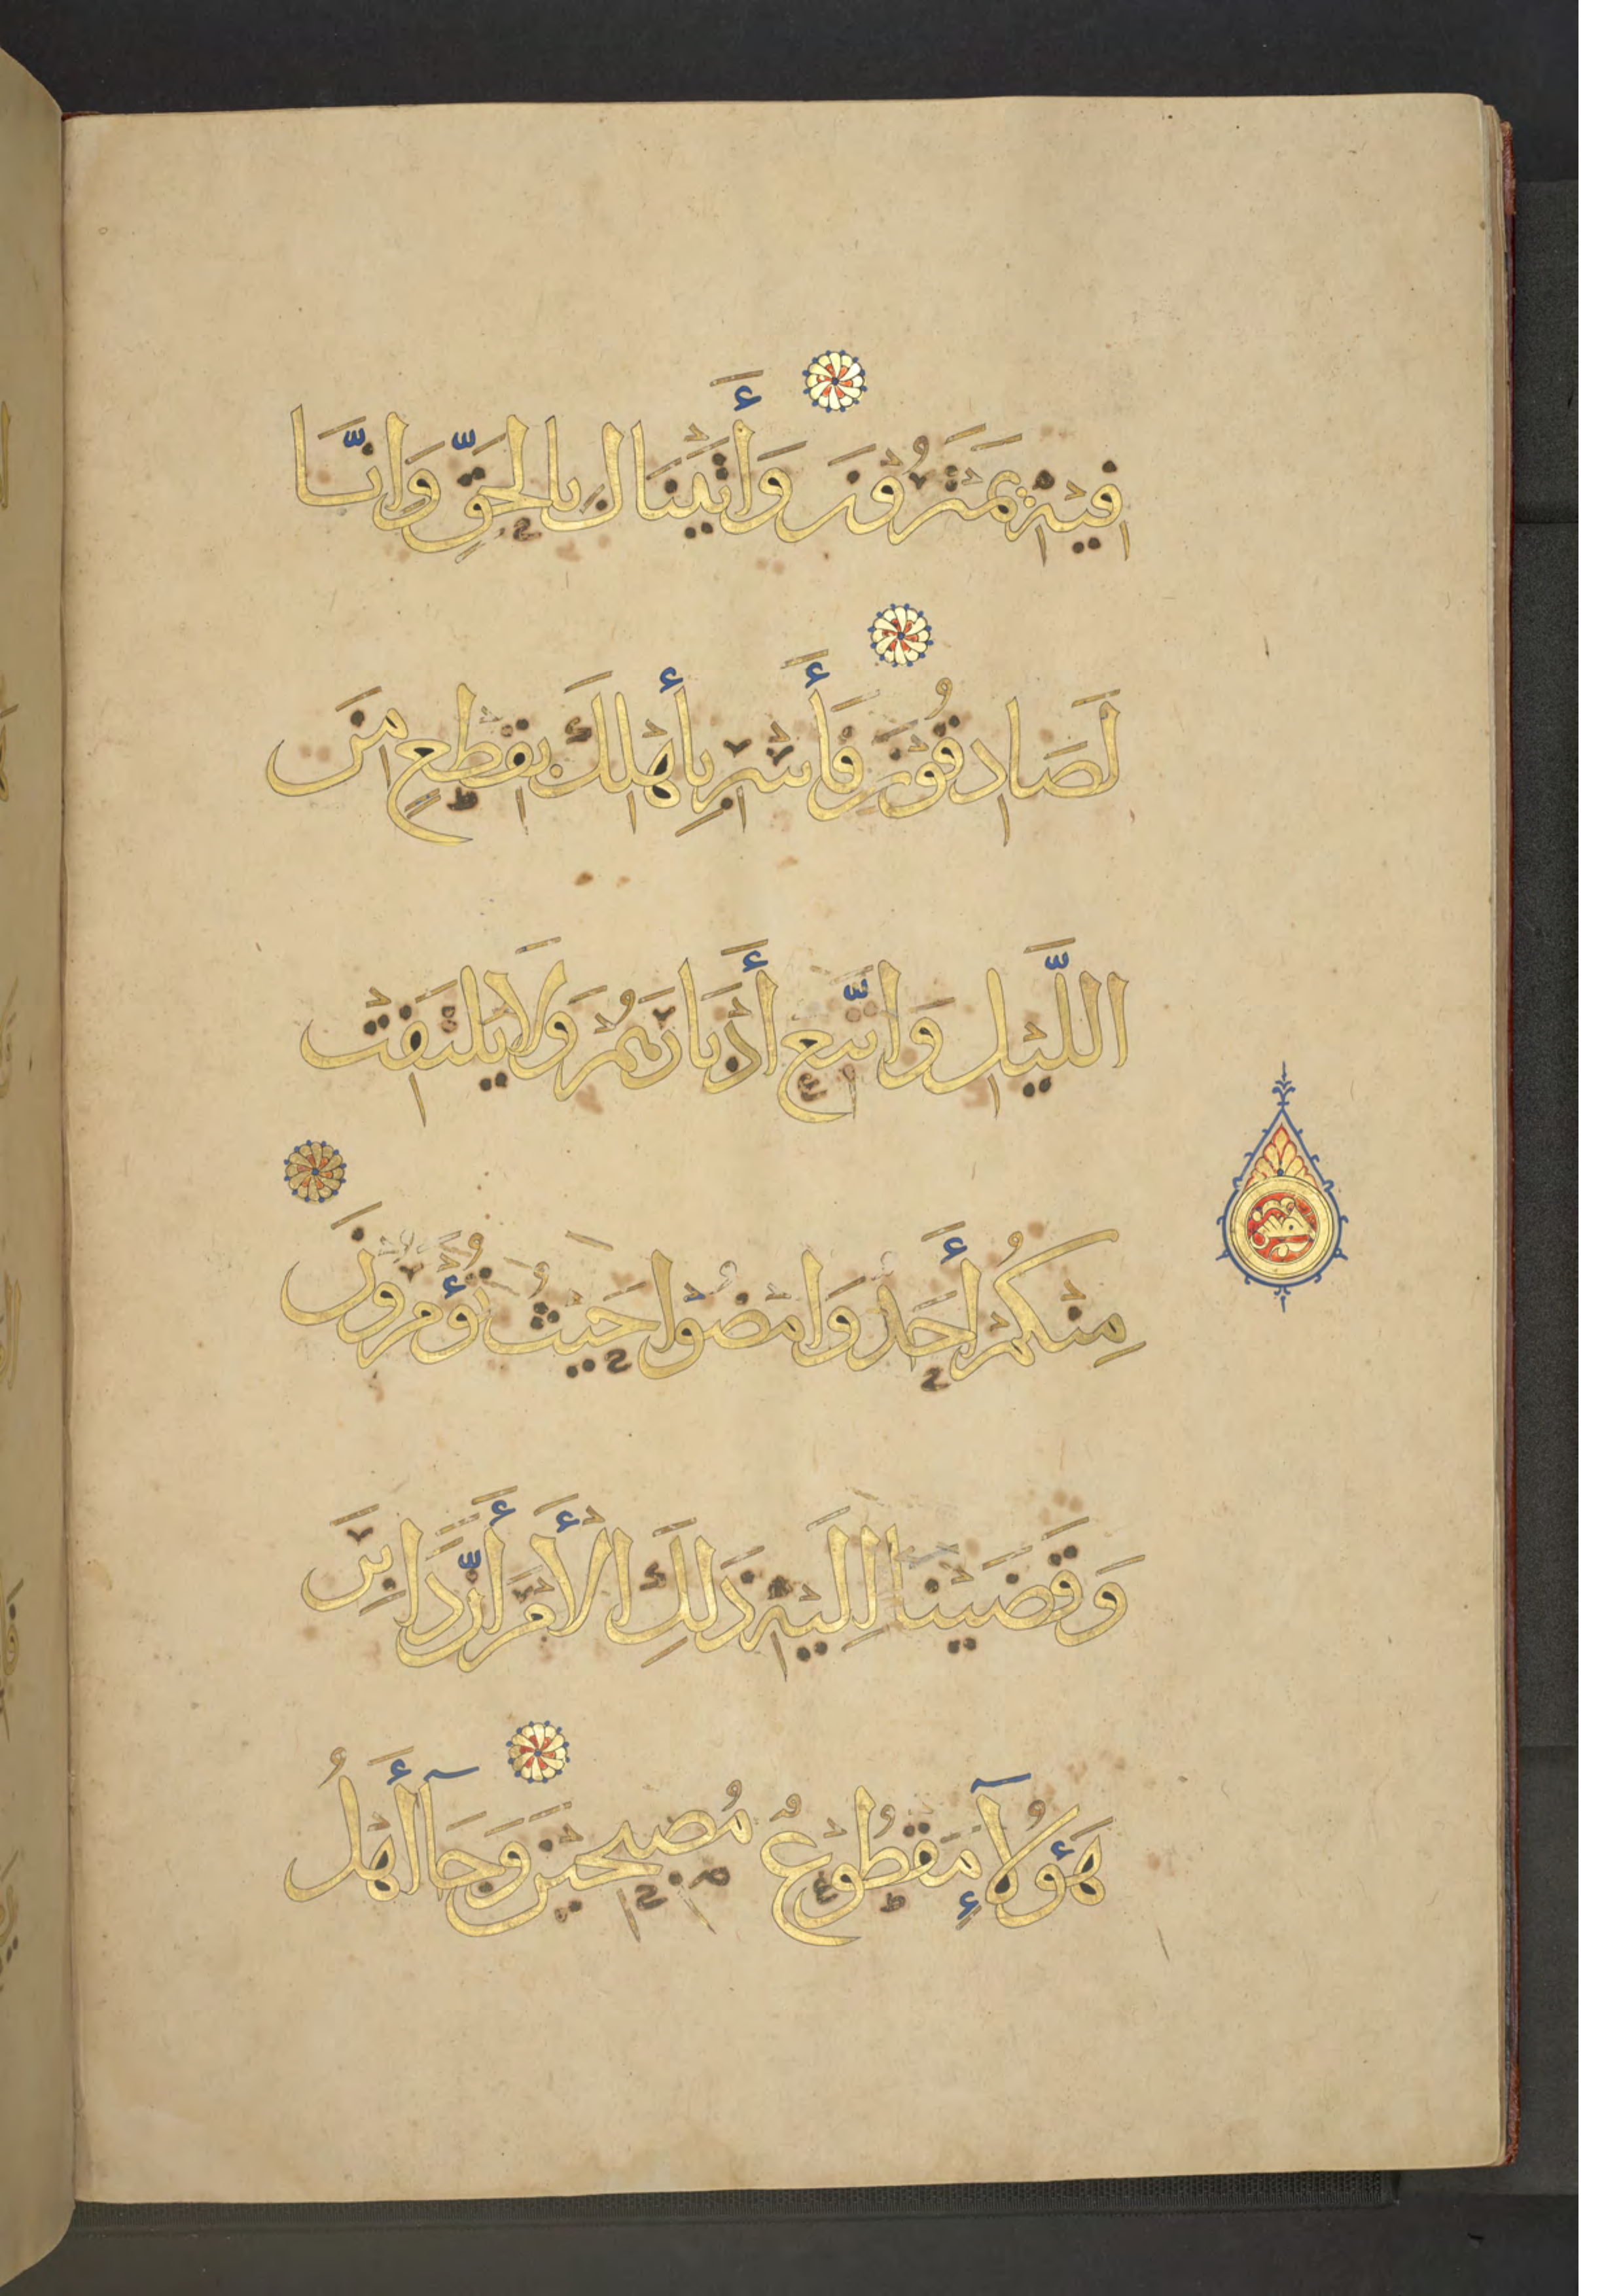 فِيهِ يَمْتَرُونَ وَأَتَيْنَاكَ بِالْحَقِّ وَإِنَّا
لَصَادِقُونَ فَأَسْرِ بِأَهْلِكَ بِقِطْعٍ مِنَ
اللَّيْلِ وَاتَّبِعْ أَدْبَارَهُمْ وَلَا يَلْتَفِتْ
مِنْكُمْ أَحَدٌ وَامْضُوا حَيْثُ تُؤْمَرُونَ
وَقَضَيْنَا إِلَيْهِ ذَلِكَ الْأَمْرَ أَنَّ دَابِرَ
هَؤُلَآءِ مَقْطُوعٌ مُصْبِحِينَ وَجَآءَ أَهْلُ